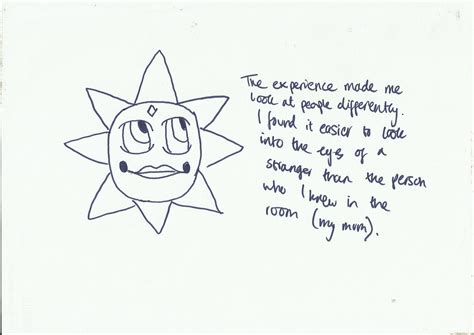 The experience made me
look at people differently.
I found it easier to look
into the eyes of a
stranger than the person
who I knew in the
room (my mum).